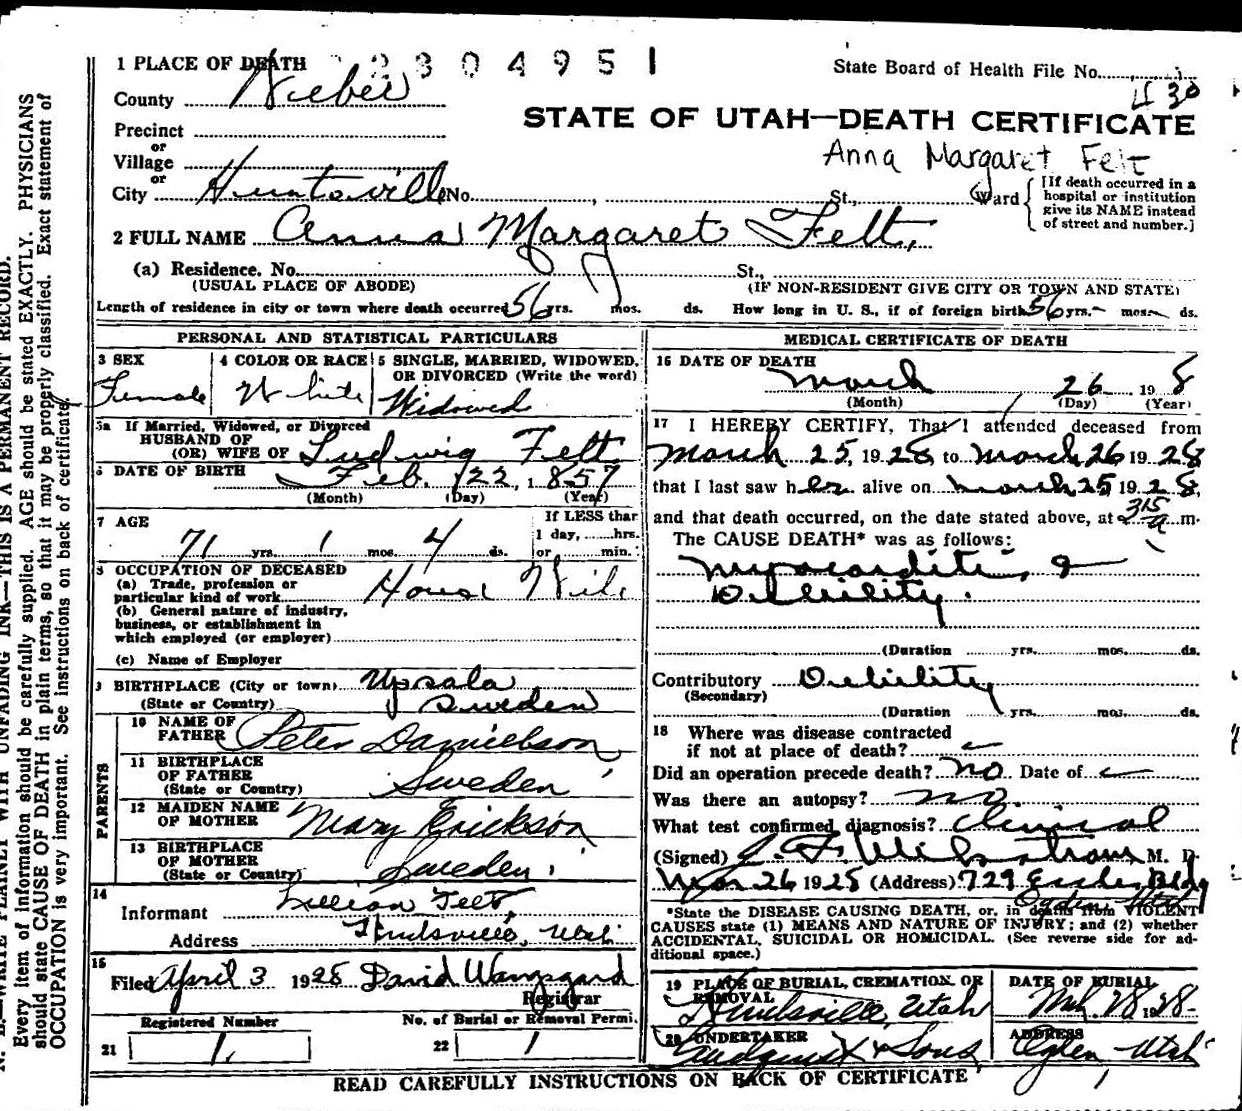 1 PLACE OF DEATH 2304951
State Board of Health File No. 430
County Weber
STATE OF UTAH—DEATH CERTIFICATE
Precinct
or
Village
Anna Margaret Felt
or
City Huntsville No. , St., Ward {[If death occurred in a hospital or institution give its NAME instead of street and number.]
2 FULL NAME Anna Margaret Felt,
(a) Residence. No. St.,
(USUAL PLACE OF ABODE) (IF NON-RESIDENT GIVE CITY OR TOWN AND STATE)
Length of residence in city or town where death occurred 56 yrs. mos. ds. How long in U. S., if of foreign birth 56 yrs. – mos. – ds.
PERSONAL AND STATISTICAL PARTICULARS
3 SEX
Female
4 COLOR OR RACE
White
5 SINGLE, MARRIED, WIDOWED,
OR DIVORCED (Write the word)
Widowed
5a If Married, Widowed, or Divorced
HUSBAND OF
(OR) WIFE OF Ludwig Felt
6 DATE OF BIRTH Feb. 22, 1857
(Month) (Day) (Year)
7 AGE
If LESS than
1 day, hrs.
71 yrs. 1 mos. 4 ds. or min.
8 OCCUPATION OF DECEASED
(a) Trade, profession or
particular kind of work House Wife
(b) General nature of industry,
business, or establishment in
which employed (or employer)
(c) Name of Employer
9 BIRTHPLACE (City or town) Upsala
(State or Country) Sweden
PARENTS
10 NAME OF
FATHER Peter Danielson
11 BIRTHPLACE
OF FATHER
(State or Country) Sweden
12 MAIDEN NAME
OF MOTHER Mary Erickson
13 BIRTHPLACE
OF MOTHER
(State or Country) Sweden
14
Informant Lillian Felt,
Address Huntsville, Utah
15
Filed April 3 1928 David Wangsgard
Registrar
Registered Number
21 1.
No. of Burial or Removal Permi.
22 1
MEDICAL CERTIFICATE OF DEATH
16 DATE OF DEATH
March 26 198
(Month) (Day) (Year)
17 I HEREBY CERTIFY, That I attended deceased from
March 25, 1928 to March 26 1928
that I last saw her alive on March 25 1928,
and that death occurred, on the date stated above, at 315 a m.
The CAUSE DEATH* was as follows:
Myocarditis, &
Debility.
(Duration yrs. mos. ds.
Contributory Debility
(Secondary)
(Duration yrs. mos. ds.
18 Where was disease contracted
if not at place of death?
Did an operation precede death? no Date of
Was there an autopsy? no.
What test confirmed diagnosis? Clinical
(Signed) M. D.
Mar 26 1928 (Address) 729 Eccles Bldg
Ogden Utah
*State the DISEASE CAUSING DEATH, or, in deaths from VIOLENT
CAUSES state (1) MEANS AND NATURE OF INJURY; and (2) whether
ACCIDENTAL, SUICIDAL OR HOMICIDAL. (See reverse side for ad-
ditional space.)
19 PLACE OF BURIAL, CREMATION, OR
REMOVAL
Huntsville, Utah
DATE OF BURIAL
Mch. 28 1928-
20 UNDERTAKER
Lindquist & Sons,
ADDRESS
Ogden Utah
READ CAREFULLY INSTRUCTIONS ON BACK OF CERTIFICATE
N. B.—WRITE PLAINLY WITH UNFADING INK—THIS IS A PERMANENT RECORD.
Every item of information should be carefully supplied. AGE should be stated EXACTLY. PHYSICIANS
should state CAUSE OF DEATH in plain terms, so that it may be properly classified. Exact statement of
OCCUPATION is very important. See instructions on back of certificate.